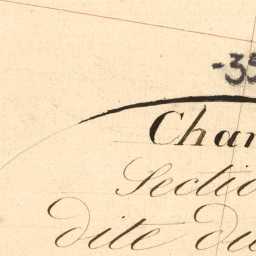 -35
Char
Sectio
dite du